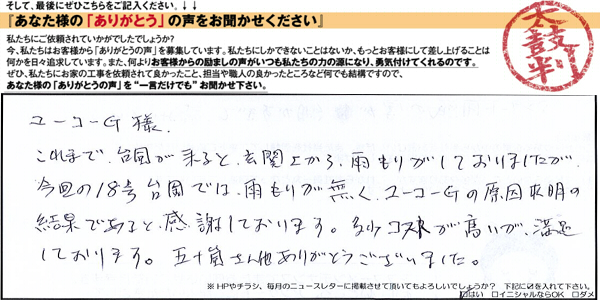 そして、最後にぜひこちらをご記入ください。↓↓↓
『あなた様の「ありがとう」の声をお聞かせください』
太鼓判
私たちにご依頼されていかがでしたでしょうか？
今、私たちはお客様から「ありがとうの声」を募集しています。私たちにしかできないことはないか、もっとお客様にして差し上げることは
何かを日々追求しています。また、何よりお客様からの励ましの声がいつも私たちの力の源になり、勇気付けてくれるのです。
ぜひ、私たちにお家の工事を依頼されて良かったこと、担当や職人の良かったところなど何でも結構ですので、
あなた様の「ありがとうの声」を“一言だけでも”お聞かせ下さい。
ユーコーG様.
これまで、台風が来ると、玄関上から、雨もりがしておりましたが、
今回の18号台風では、雨もりが無く、ユーコーGの原因究明の
結果であると感謝しております。多少コストが高いが、満足
しております。五十嵐さん他ありがとうございました。
※HPやチラシ、毎月のニュースレターに掲載させて頂いてもよろしいでしょうか？ 下記に☑を入れて下さい。
☑はい ロイニシャルならOK ロダメ